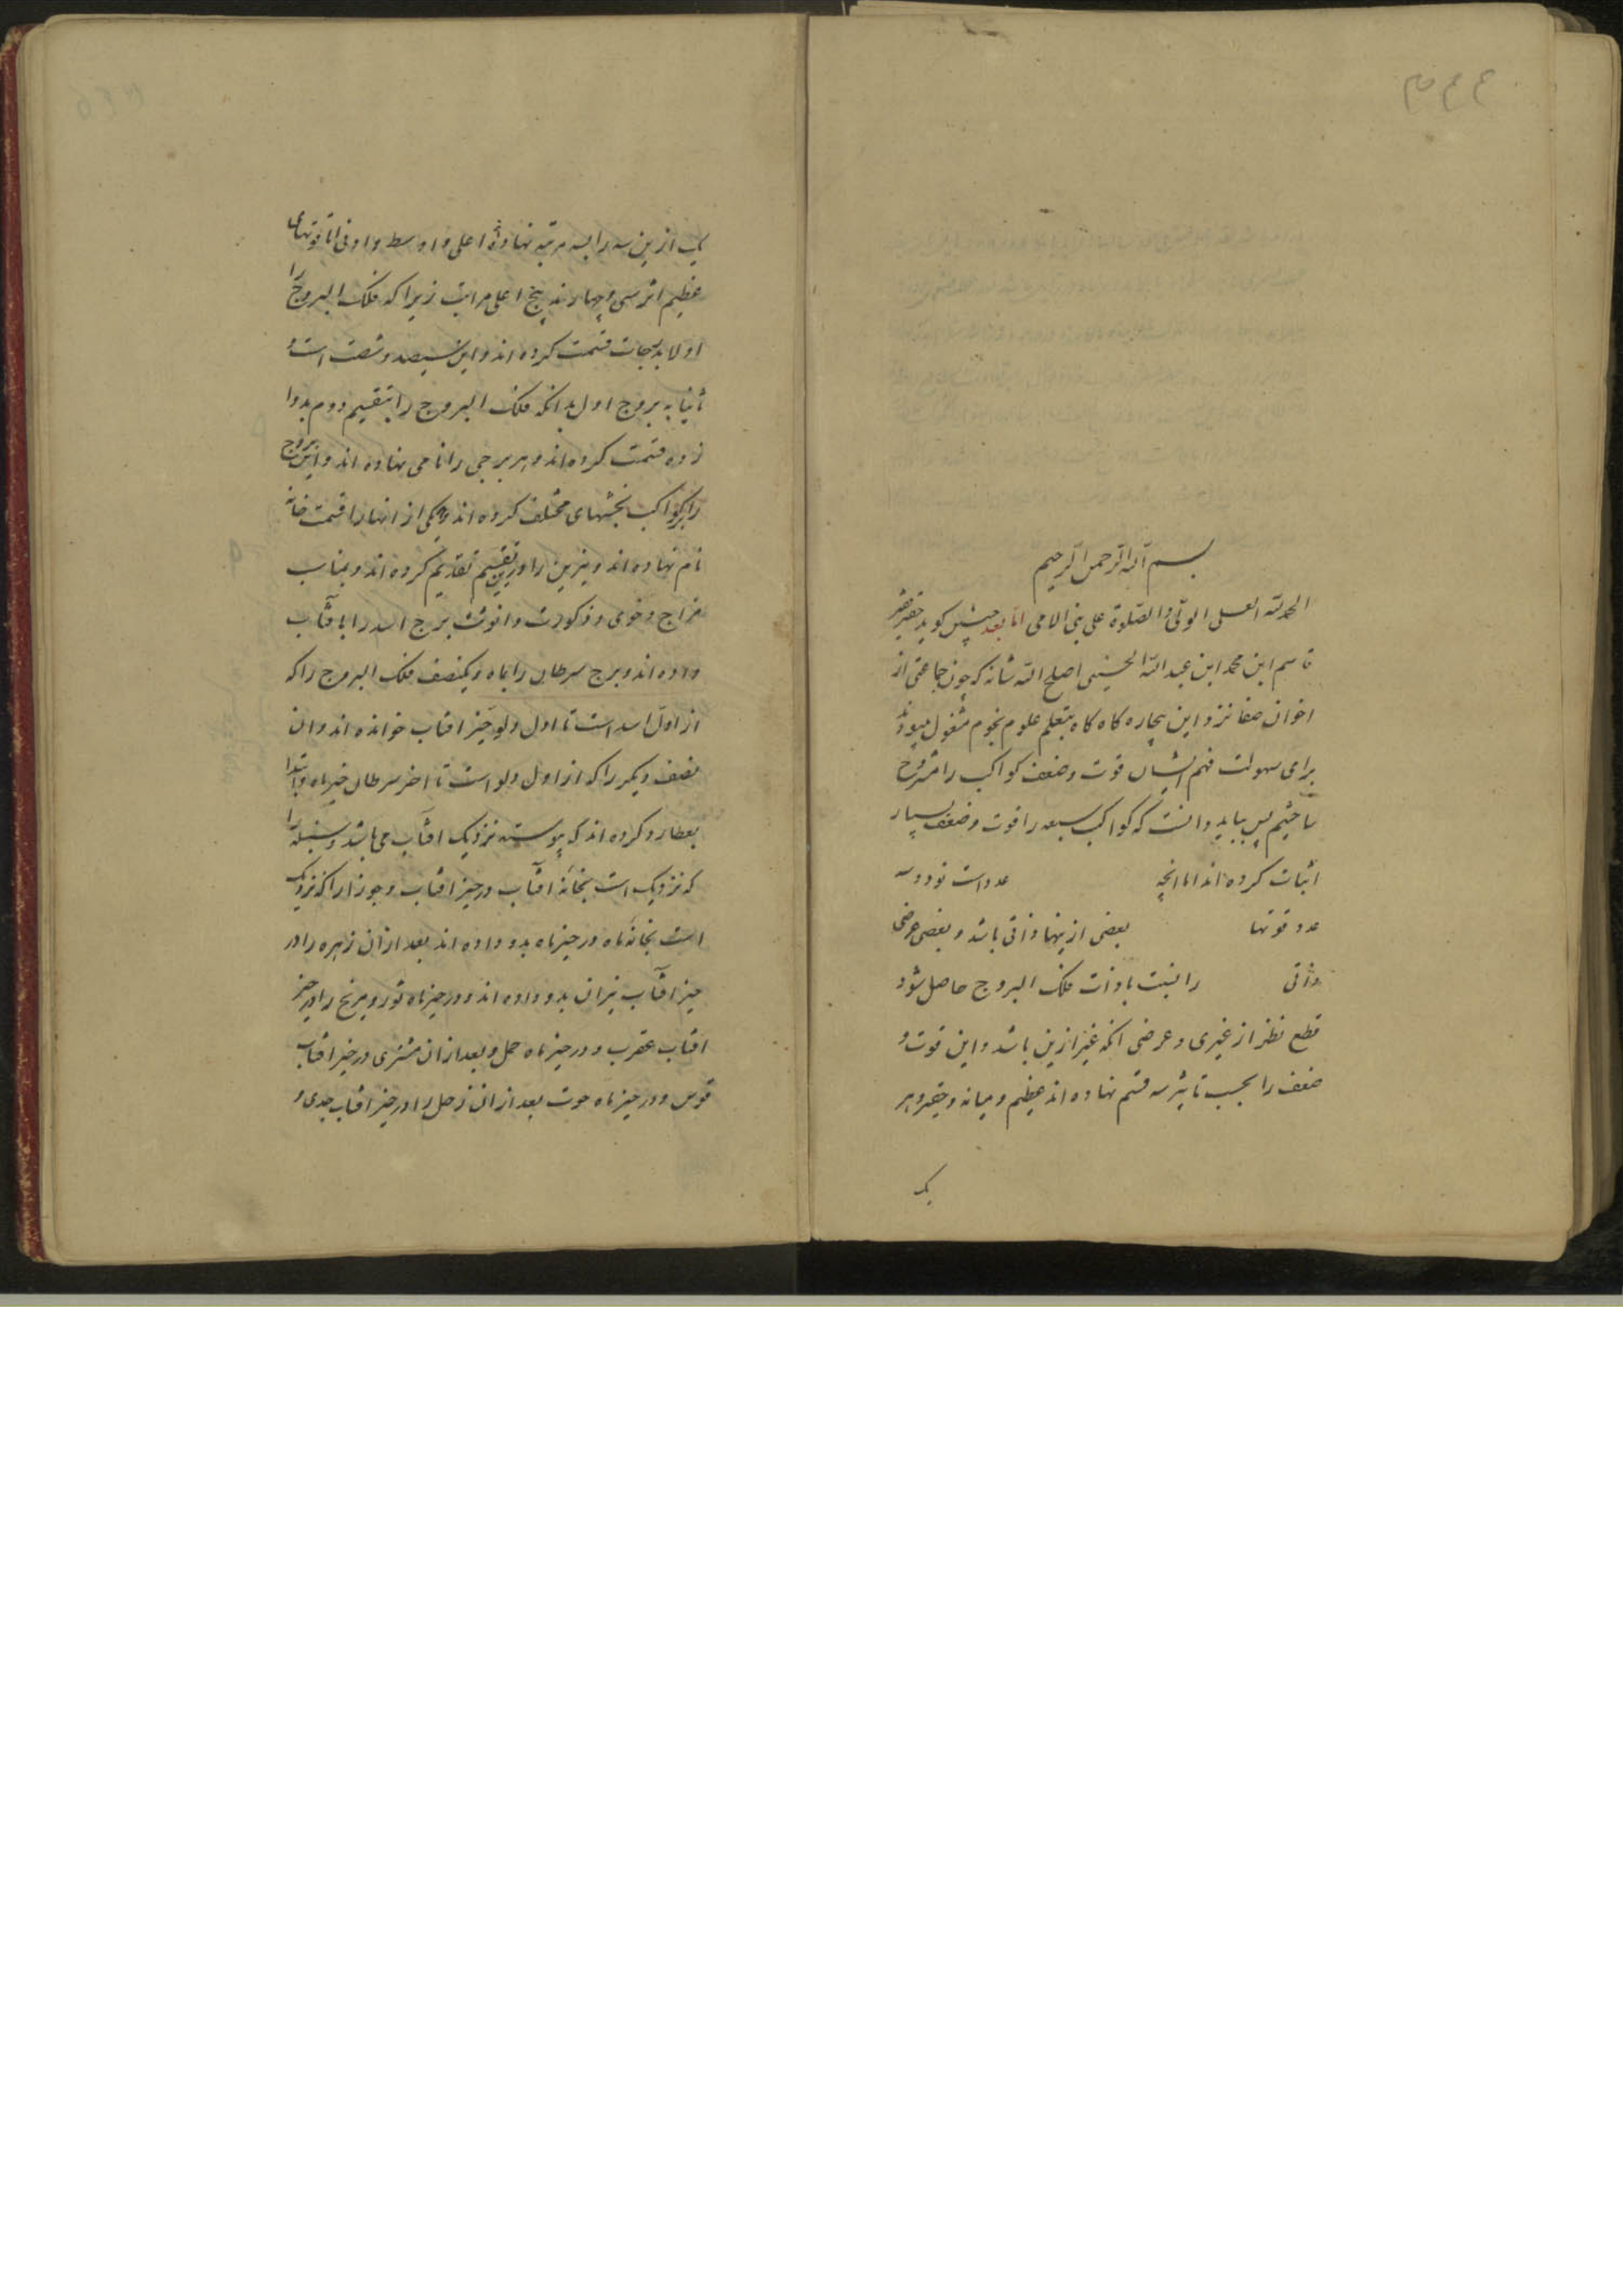 بسم الله الرحمن الرحیم
الحمد لله العلی الولی والصلوة علی نبی الامی اما بعد چنین کوید حقیر فقیر
قاسم ابن محمد ابن عبدالله الحسینی اصلح الله شانه که چون جماعتی از
اخوان صفا نزد این بیچاره کاه کاه بتعلم علوم نجوم مشغول میبودند
برای سهولت فهم ایشان قوت وضعف کواکب را مشروح
ساختیم پس بباید دانست که کواکب سبعه را قوت وضعف بسیار
اثبات کرده اند اما انچه عدد است نود و سه
عدد قوتها بعضی ازینها ذاتی باشد و بعضی عرضی
ذاتی را نسبت با ذات فلک البروج حاصل شود
قطع نظر از غیری و عرضی انکه غیر ازین باشد و این قوت و
ضعف را بحسب تاثیر سه قسم نهاده اند عظیم و میانه و حقیر و هر
یک
یک ازین سه را بسه مرتبه نهاده اند اعلی و اوسط و ادنی اما قوتهای
عظیم اثر سی و چهارند پنج اعلی مراتب زیرا که فلک البروج را
اولا بدرجات قسمت کرده اند و این سیصد و شصت است و
ثانیا به بروج اول بدانکه فلک البروج را بتقسیم دوم بدوا
زده قسمت کرده اند و هر برجی را نامی نهاده اند و این بروج
را بر کواکب بخشهای مختلف کرده اند و یکی از انها را قسمت خانه
نام نهاده اند و نیرین را درین تقسیم تقدیم کرده اند و بمناسب
مزاج و خوی و ذکورت و انوثت برج اسد را بافتاب
داده اند و برج سرطان را بماه و یکنصف فلک البروج را که
از اول اسد است تا اول دلو حیز افتاب خوانده اند و ان
نصف دیکر را که از اول دلو است تا اخر سرطان حیز ماه و ابتدا
بعطارد کرده اند که پیوسته نزدیک افتاب می باشد و سنبله را
که نزدیک است بخانه افتاب در حیز افتاب و جوزا را که نزدیک
است بخانه ماه در حیز ماه بدو داده اند بعد از ان زهره را در
حیز افتاب میزان بدو داده اند و در حیز ماه ثور و مریخ را در حیز
افتاب عقرب و در حیز ماه حمل و بعد از ان مشتری در حیز افتاب
قوس و در حیز ماه حوت بعد از ان زحل را در حیز افتاب جدی و